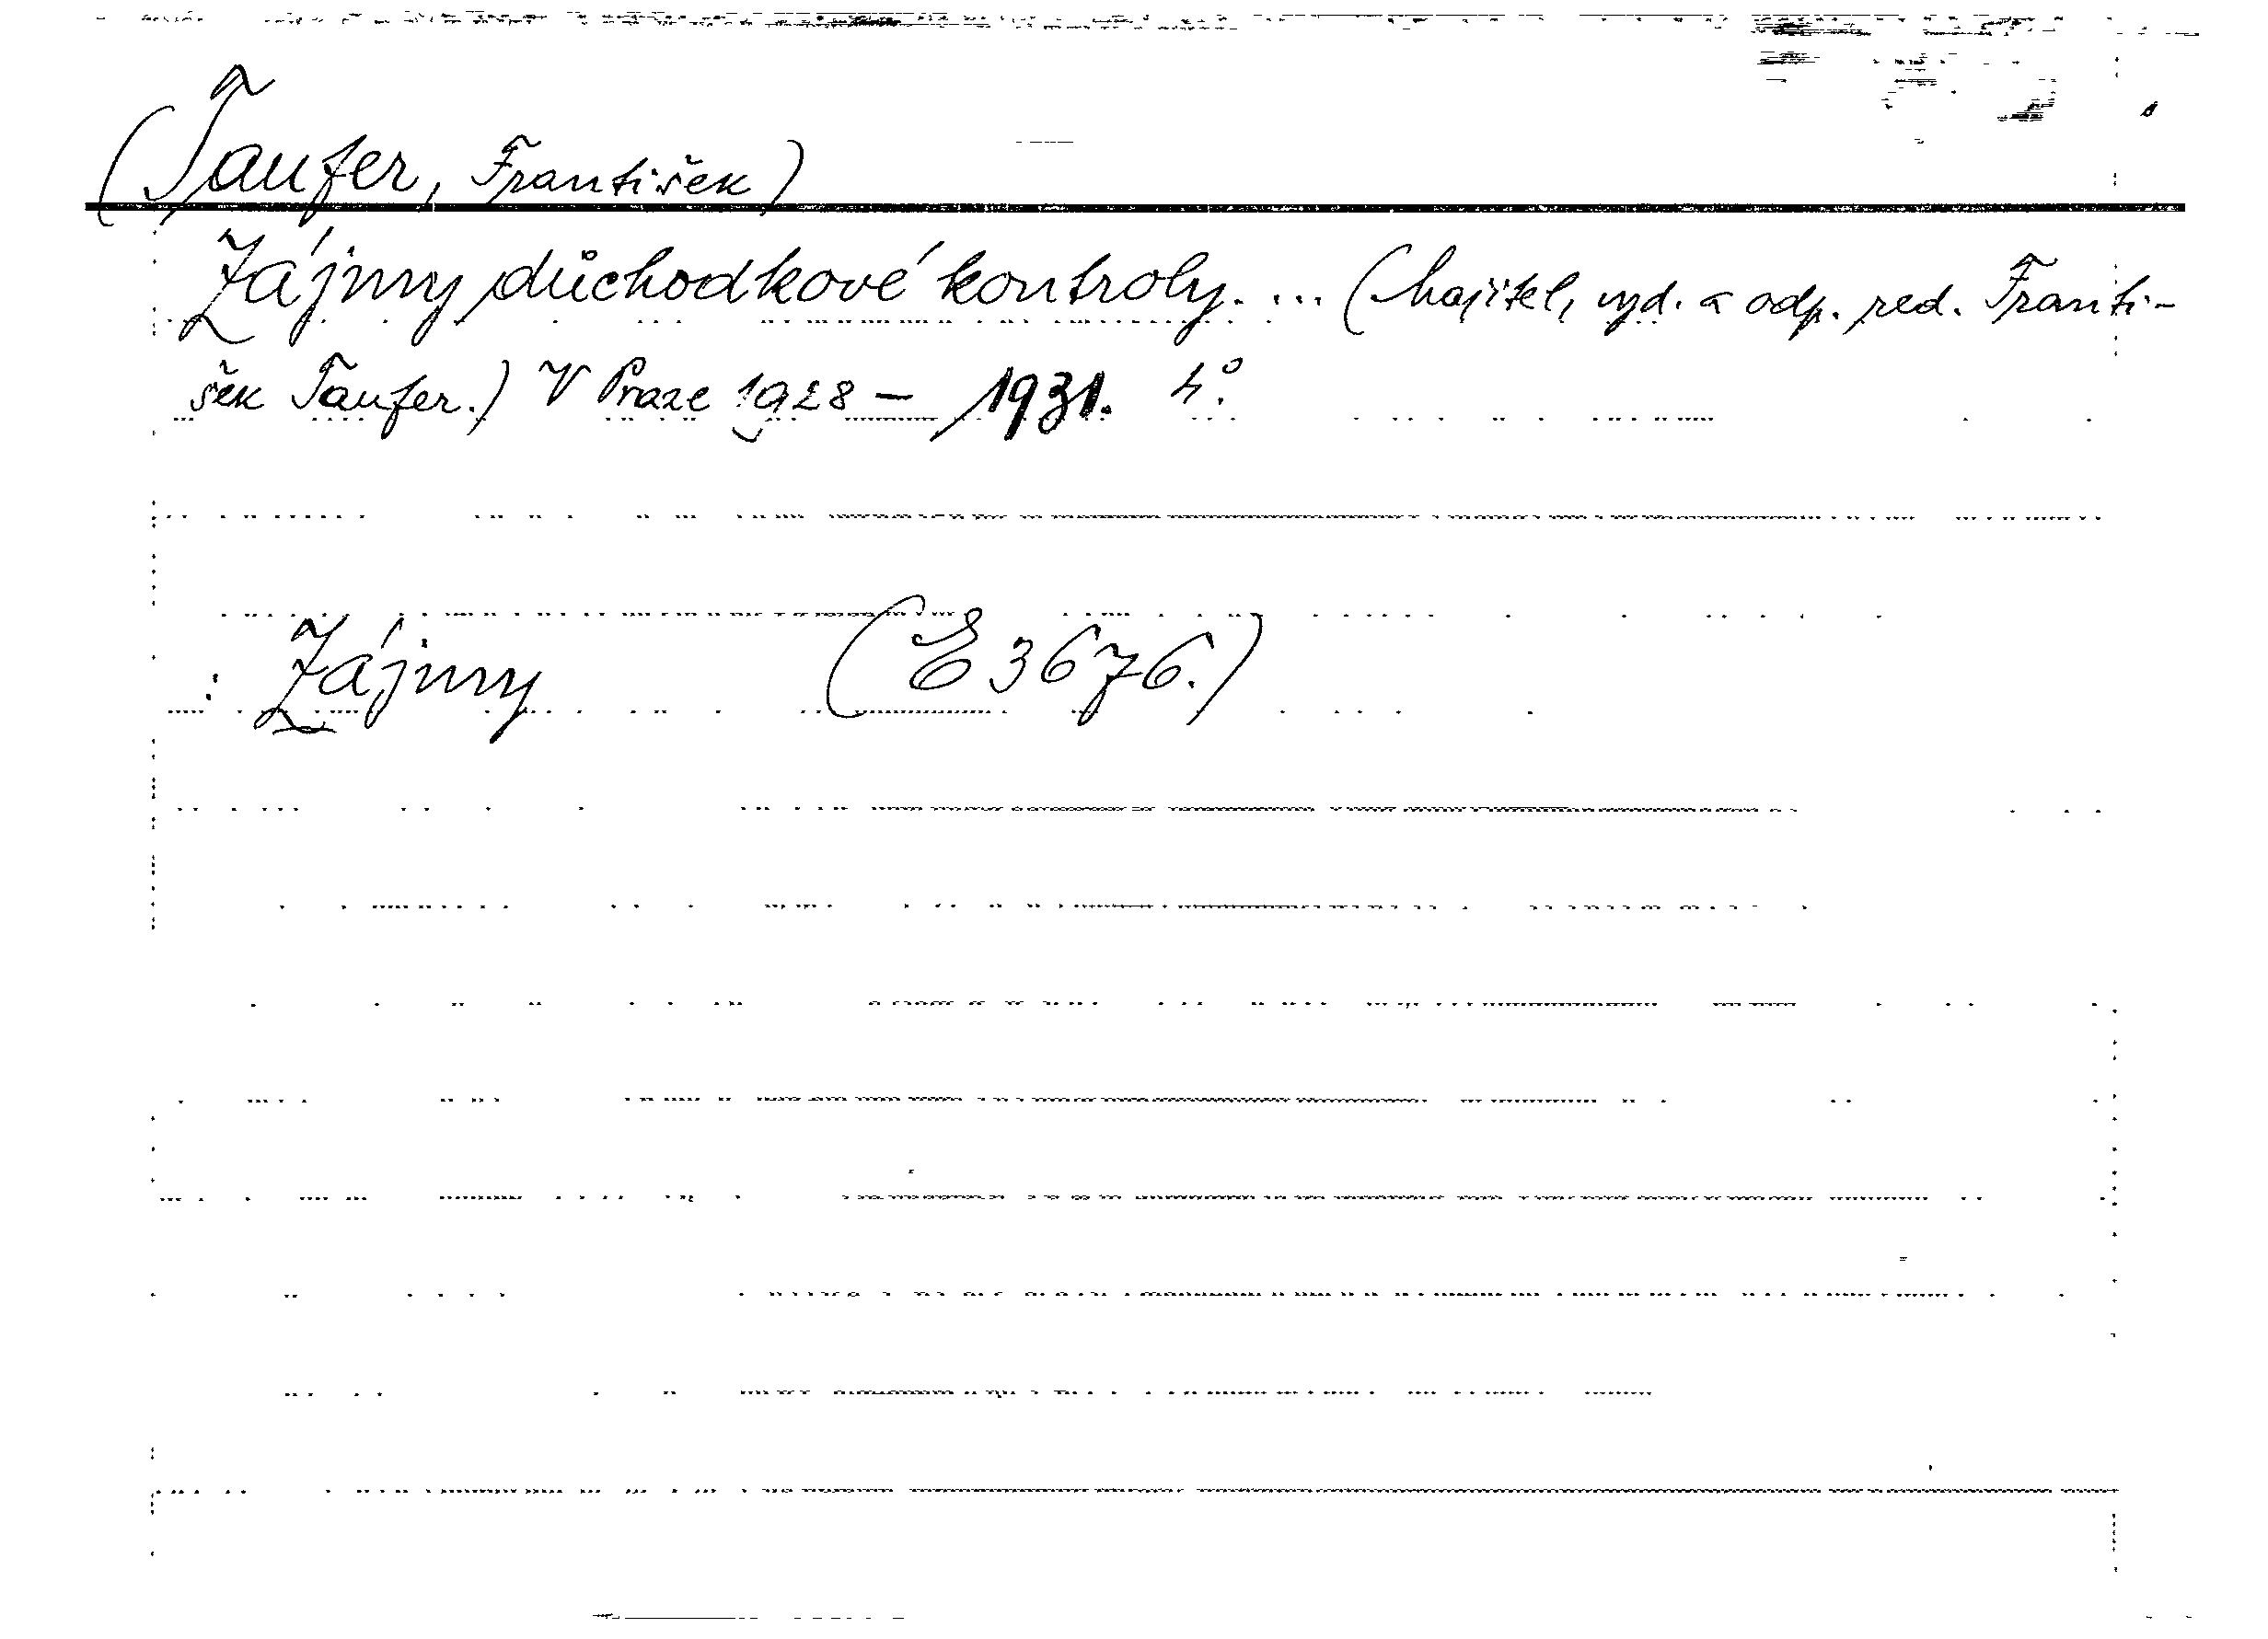 (Taufer, František)
Zájmy důchodkové kontroly. ... (Majitel, vyd. a odp. red. Franti-
šek Taufer.) V Praze 1928 - 1931. 4°.
: Zájmy (E 3676.)